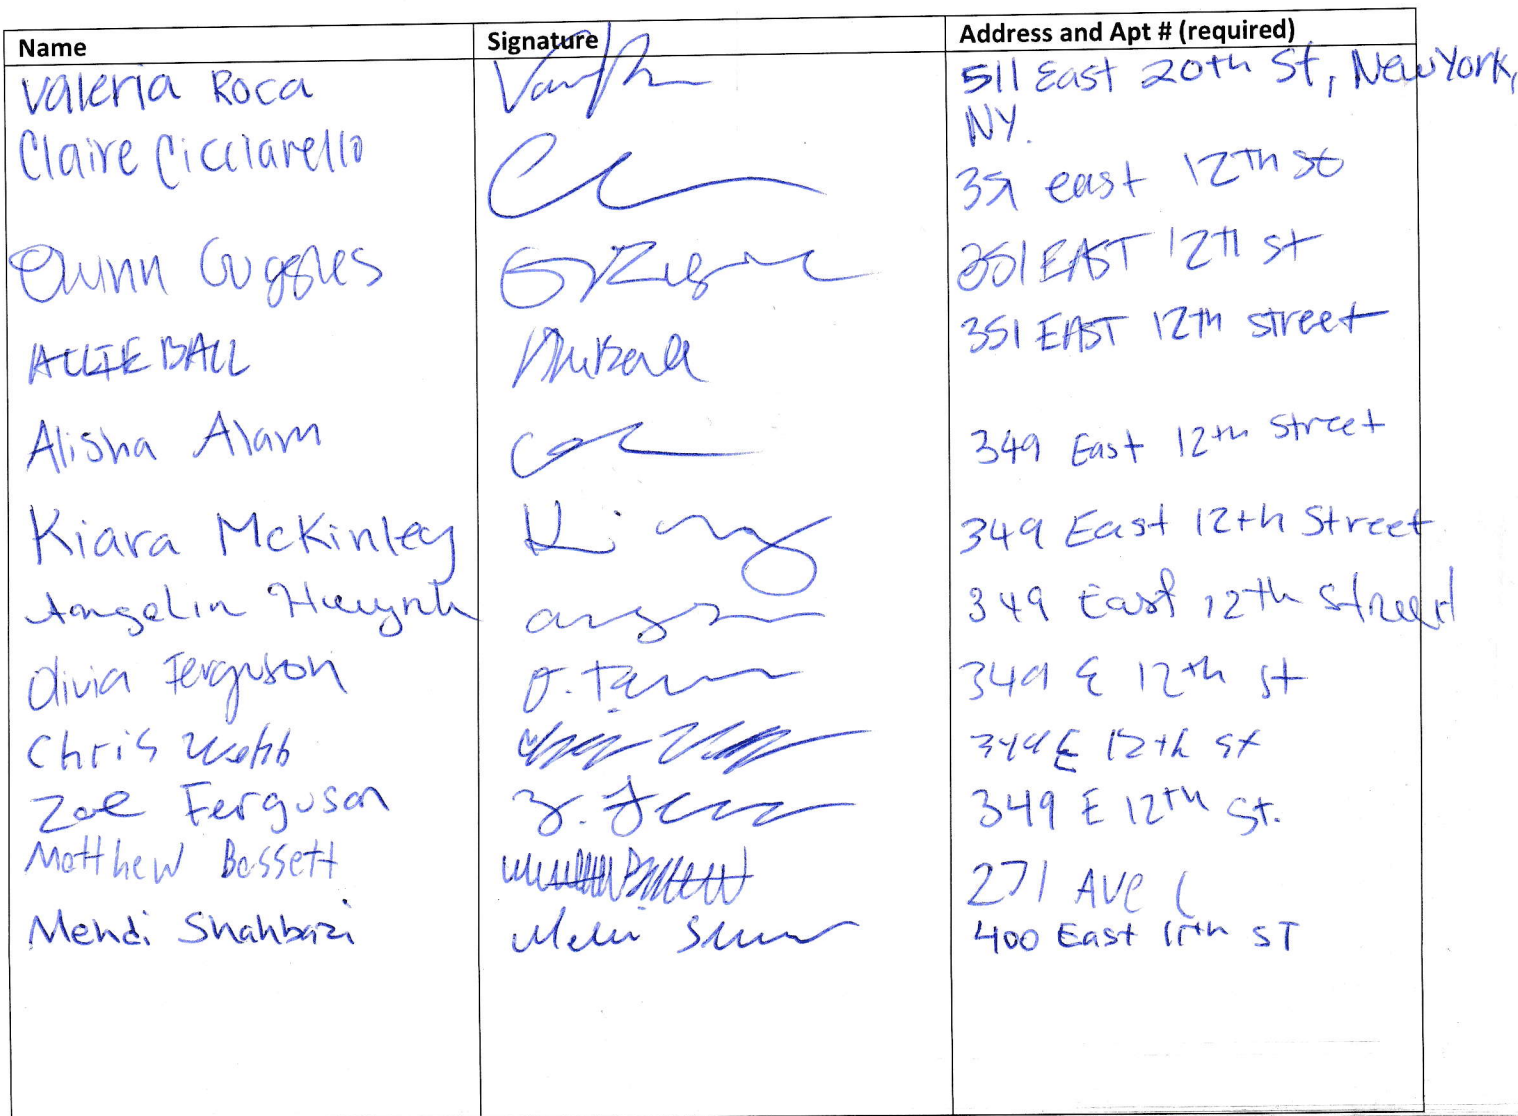 Name Signature Address and Apt # (required)
Valeria Roca 511 East 20th St, New York,
NY.
Claire Cicciarello 351 east 12th st
Quinn Guggles 351 EAST 12th st
ALLIE BALL 351 EAST 12th street
Alisha Alam 349 East 12th Street
Kiara McKinley 349 East 12th Street
Angelin Huynh 349 East 12th Street
Olivia Ferguson O. Fer 349 E 12th st
Chris Webb 349 E 12th st
Zoe Ferguson Z. Fer 349 E 12th St.
Matthew Bassett 271 AVE C
Mehdi Shahbazi 400 East 11th ST